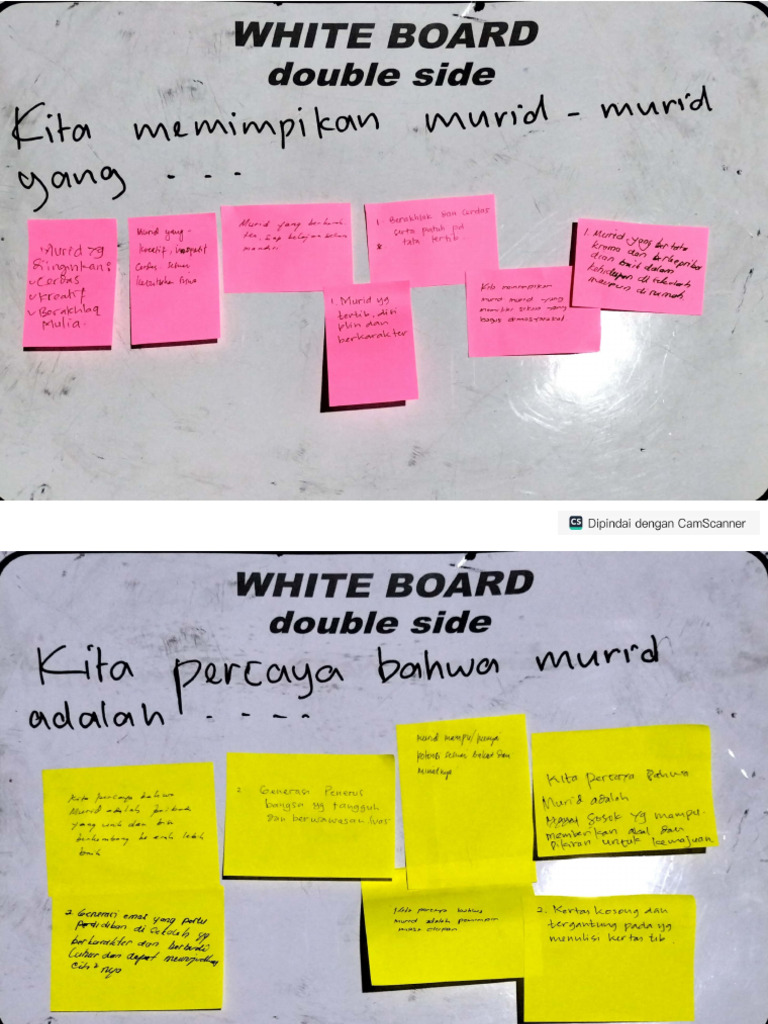 WHITE BOARD
double side
Kita memimpikan murid - murid
yang . . .
Murid yg
diinginkan :
Cerdas
Kreatif
Berakhlaq
Mulia.
Murid yang
kreatif, inovatif
Cerdas sesuai
Murid yang
belajar
mandiri
1. Berakhlak dan Cerdas
serta patuh pd
tata tertib
2
1. Murid yg
tertib, disi
plin dan
berkarakter
Kita memimpikan
murid murid yang
yang
bagus
1. Murid yang bertata
krama dan berkepriba
dian baik dalam
kehidupan di sekolah
maupun di rumah.
CS Dipindai dengan CamScanner
WHITE BOARD
double side
Kita percaya bahwa murid
adalah . . . .
Kita percaya bahwa
Murid adalah pribadi
yang unik dan bisa
berkembang ke arah lebih
baik
2. Generasi Penerus
bangsa yg tangguh
dan berwawasan luas
Murid mampu/punya
potensi sesuai bakat dan
minatnya
Kita percaya bahwa
Murid adalah
sosok yg mampu
memberikan akal dan
pikiran untuk kemajuan
2. Generasi emas yang perlu
di sekolah yg
berkarakter dan berbudi
luhur dan dapat mewujudkan
cita²nya
1. Kita percaya bahwa
murid adalah pemimpin
masa depan
2. Kertas kosong dan
tergantung pada yg
menulisi kertas tsb.